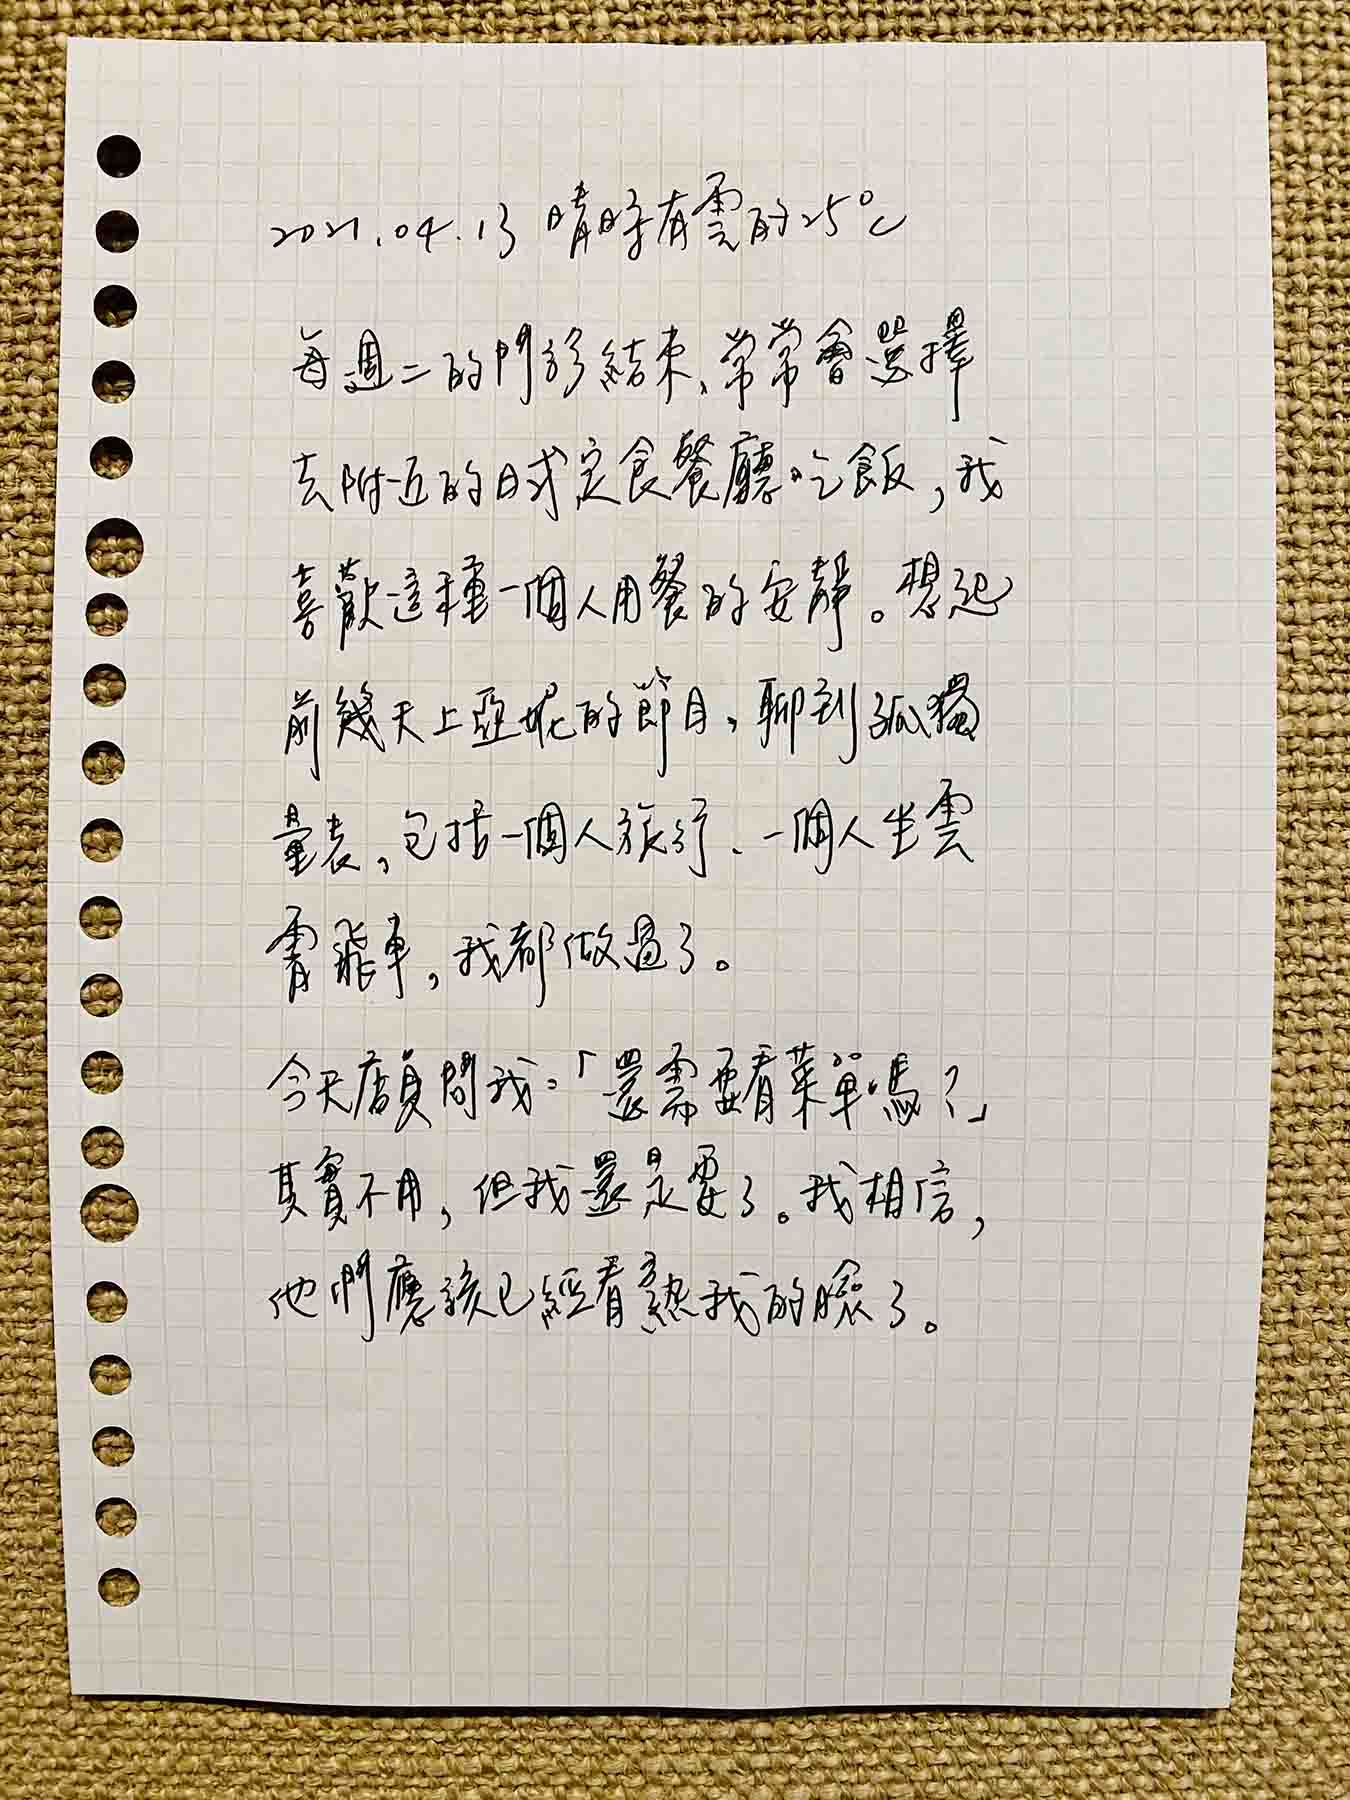 2021.04.13 晴時有雲的25℃
每週二的門診結束、常常會選擇
去附近的日式定食餐廳吃飯，我
喜歡這種一個人用餐的安靜。想起
前幾天上亞妮的節目，聊到孤獨
量表，包括一個人旅行、一個人坐雲
霄飛車，我都做過了。
今天店員問我：「還需要看菜單嗎？」
其實不用，但我還是要了。我相信，
他們應該已經看熟我的臉了。